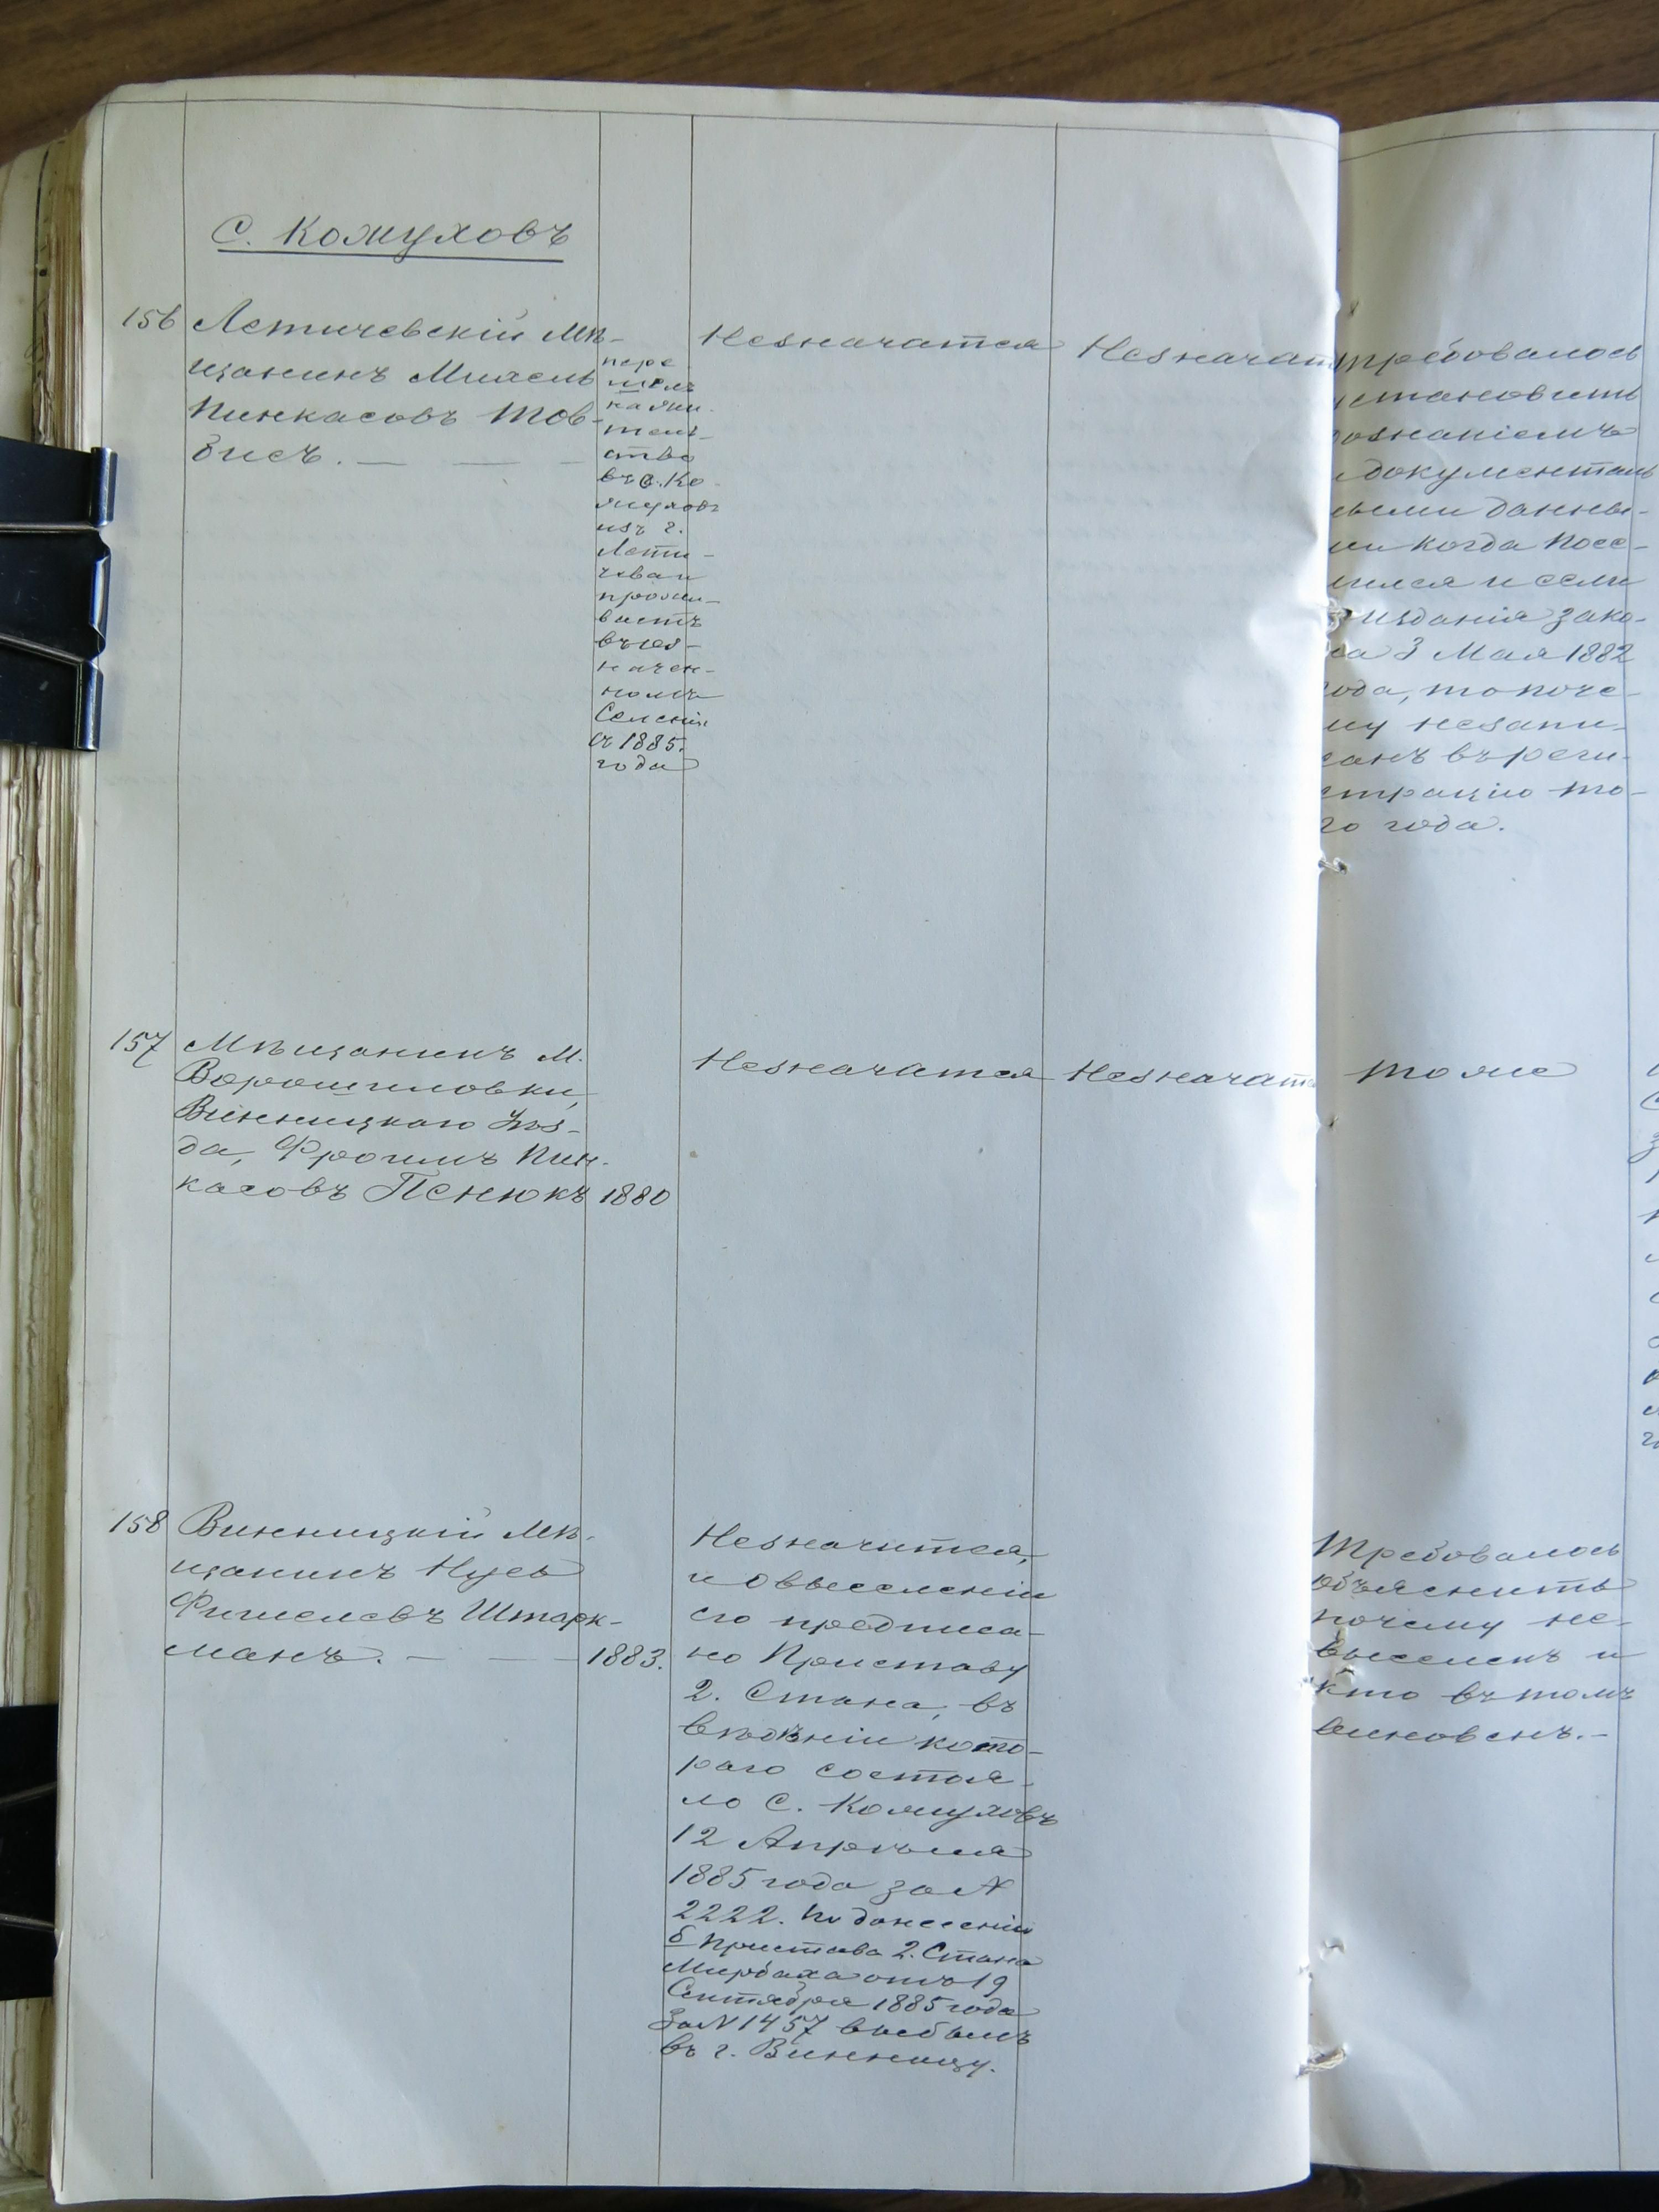 С. Кожуховъ
156
Летичевскій Мѣ-
щанинъ Михель
Пинкасовъ Тов-
бисъ. — — —
пере
шелъ
на жи-
тель-
ство
въ с. Ко-
жуховъ
изъ г.
Лети-
чева и
прожи-
ваетъ
въ оз-
начен-
номъ
Селеніи
съ 1885.
года
Незначатся
Незначат
Требовалось
установить
дознаніемъ
документаль
ными данны-
ми когда посе-
лился и если
изданія зако-
на 3 Мая 1882
года, то поче-
му незапи-
санъ въ реги-
страцію то-
го года.
157
Мѣщанинъ М.
Ворошиловки,
Винницкаго Уѣз-
да, Фроимъ Пин-
касовъ Пенюкъ
1880
Незначатся
Незначатс
тоже
158
Винницкій Мѣ-
щанинъ Нусь
Фишелевъ Штарк-
манъ. — — —
1883.
Незначится,
и о выселеніи
его предписа-
но Приставу
2. Стана, въ
вѣдѣніи кото-
раго состоя-
ло С. Кожуховъ
12 Апрѣля
1885 года за №
2222. По донесенію
б Пристава 2. Стана
Мирбаха отъ 19
Сентября 1885 года
за № 1457 выбылъ
въ г. Винницу.
Требовалось
объяснить
почему не-
выселенъ и
кто въ томъ
виновенъ.-